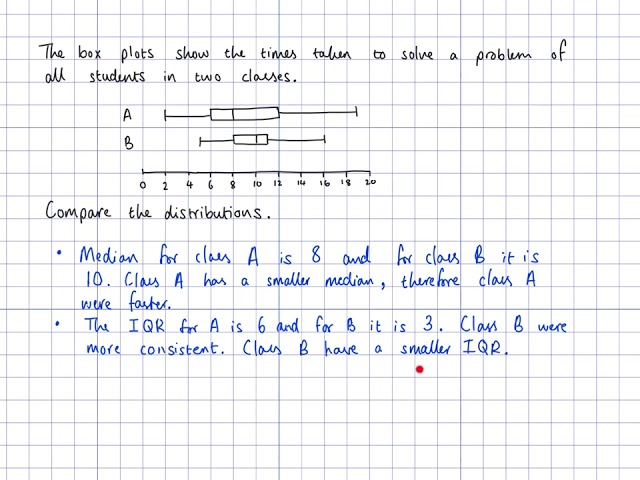 The box plots show the times taken to solve a problem of
all students in two classes.
A
B
0 2 4 6 8 10 12 14 16 18 20
Compare the distributions.
• Median for class A is 8 and for class B it is
10. Class A has a smaller median, therefore class A
were faster.
• The IQR for A is 6 and for B it is 3. Class B were
more consistent. Class B have a smaller IQR.